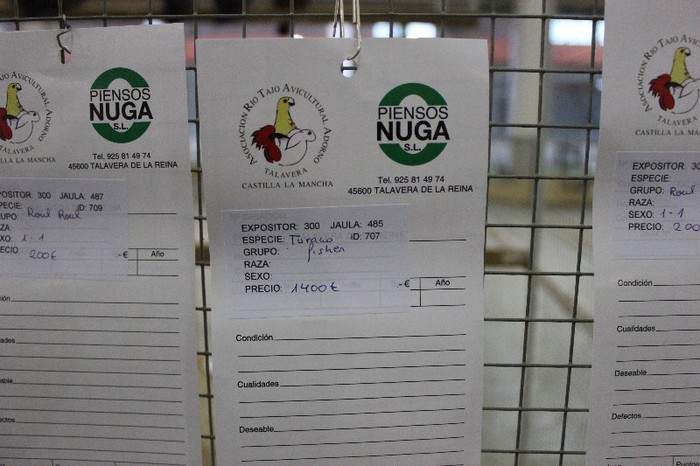 ASOCIACION RIO TAJO AVICULTURAL ADORNO
TALAVERA
CASTILLA LA MANCHA
PIENSOS
NUGA
S.L.
Tel. 925 81 49 74
45600 TALAVERA DE LA REINA
XPOSITOR: 300 JAULA: 487
SPECIE: ID: 709
GRUPO: Roul Roul
RAZA:
SEXO: 1-1
PRECIO 200€
-€ Año
ASOCIACION RIO TAJO AVICULTURAL ADORNO
TALAVERA
CASTILLA LA MANCHA
PIENSOS
NUGA
S.L.
Tel. 925 81 49 74
45600 TALAVERA DE LA REINA
EXPOSITOR: 300 JAULA: 485
ESPECIE: Turaco ID: 707
GRUPO: fisher
RAZA:
SEXO:
PRECIO: 1400€
-€ Año
Condición
Cualidades
Deseable
TALAVERA
CASTILLA LA MANCHA
EXPOSITOR: 300
ESPECIE:
GRUPO: Roul
RAZA:
SEXO: 1-1
PRECIO: 200
Condición
Cualidades
Deseable
Defectos
Puntos